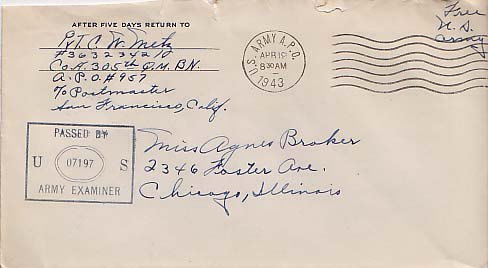 AFTER FIVE DAYS RETURN TO
Pvt. C. W. Metz
#36323421
Co. A. 305th Q.M. BN.
A.P.O. #957
c/o Postmaster
San Francisco, Calif.
U.S. ARMY A.P.O.
APR 19
8 30 AM
1943
Free
U.S.
Army
PASSED BY
U 07197 S
ARMY EXAMINER
Miss Agnes Broker
2346 Foster Ave.
Chicago, Illinois